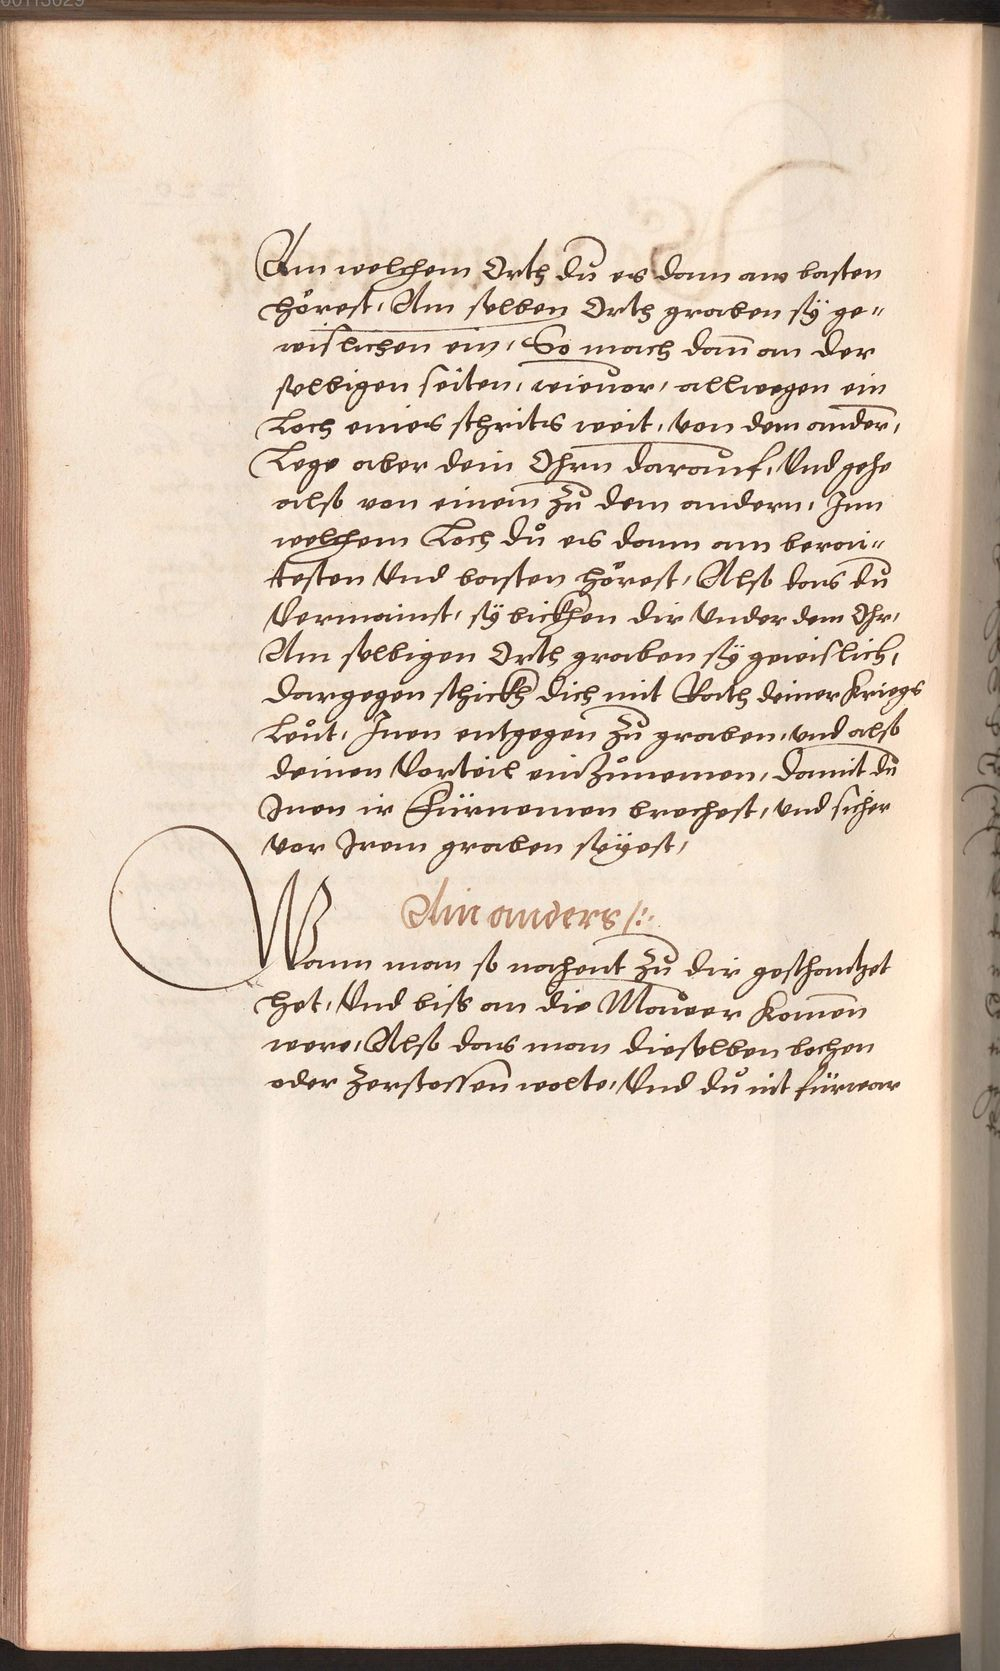 00113029
Am welchem Orth du es dann am basten
hörest, Am selben Orth graben sÿ ge„
wislichen ein, So mach dañ an der
selbigen seiten, wieuor, allwegen ein
Loch eines schrits weit, von dem andern,
Lege aber dein Ohrn darauf, Vnd gehe
alß von einem zu dem andern, Inn
welchem Loch du es dann am berai„
testen Vnd basten hörest, Alß das du
Vermainst, sÿ bickhen dir Vnder dem Ohr,
Am selbigen Orth graben sÿ gewislich,
dargegen schickh dich mit Rath deiner Kriegs
Leut, Inen entgegen zu graben, vnd alß
deinen Vorteil einzunemen, damit du
Inen ir Fürnemen brechest, vnd sicher
vor Irem graben seÿest,
Ain anders /:.
Wann man so nahent zu dir geschantzet
het, Vnd biß an die Mauer komen
were, Alß das man dieselben bochen
oder zerstossen wolte, Vnd du nit fürwar